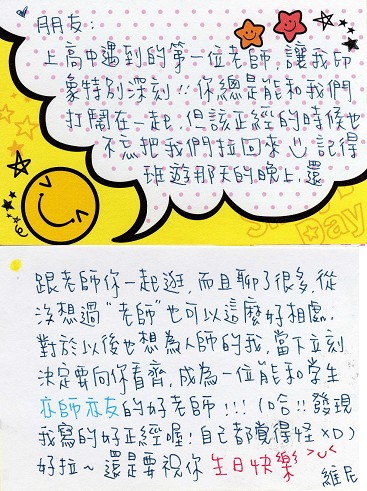 朋友:
上高中遇到的第一位老師,讓我印
象特別深刻!!你總是能和我們
打鬧在一起,但該正經的時候也
不忘把我們拉回來 記得
班遊那天的晚上,還
Day
跟老師你一起逛,而且聊了很多,從
沒想過"老師"也可以這麼好相處.
對於以後也想為人師的我,當下立刻
決定要向你看齊,成為一位能和學生
亦師亦友的好老師!!!(哈!!發現
我寫的好正經喔!自己都覺得怪XD)
好拉~還是要祝你 生日快樂 >u<
維尼